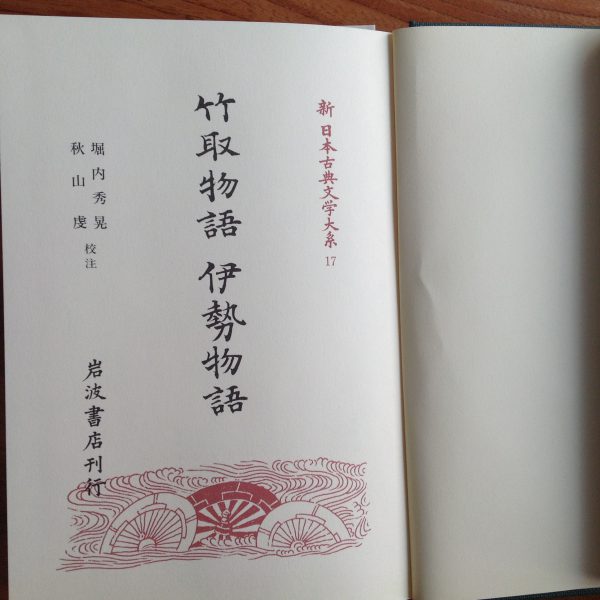 新 日本古典文学大系 17
竹取物語 伊勢物語
堀内秀晃
秋山虔 校注
岩波書店刊行